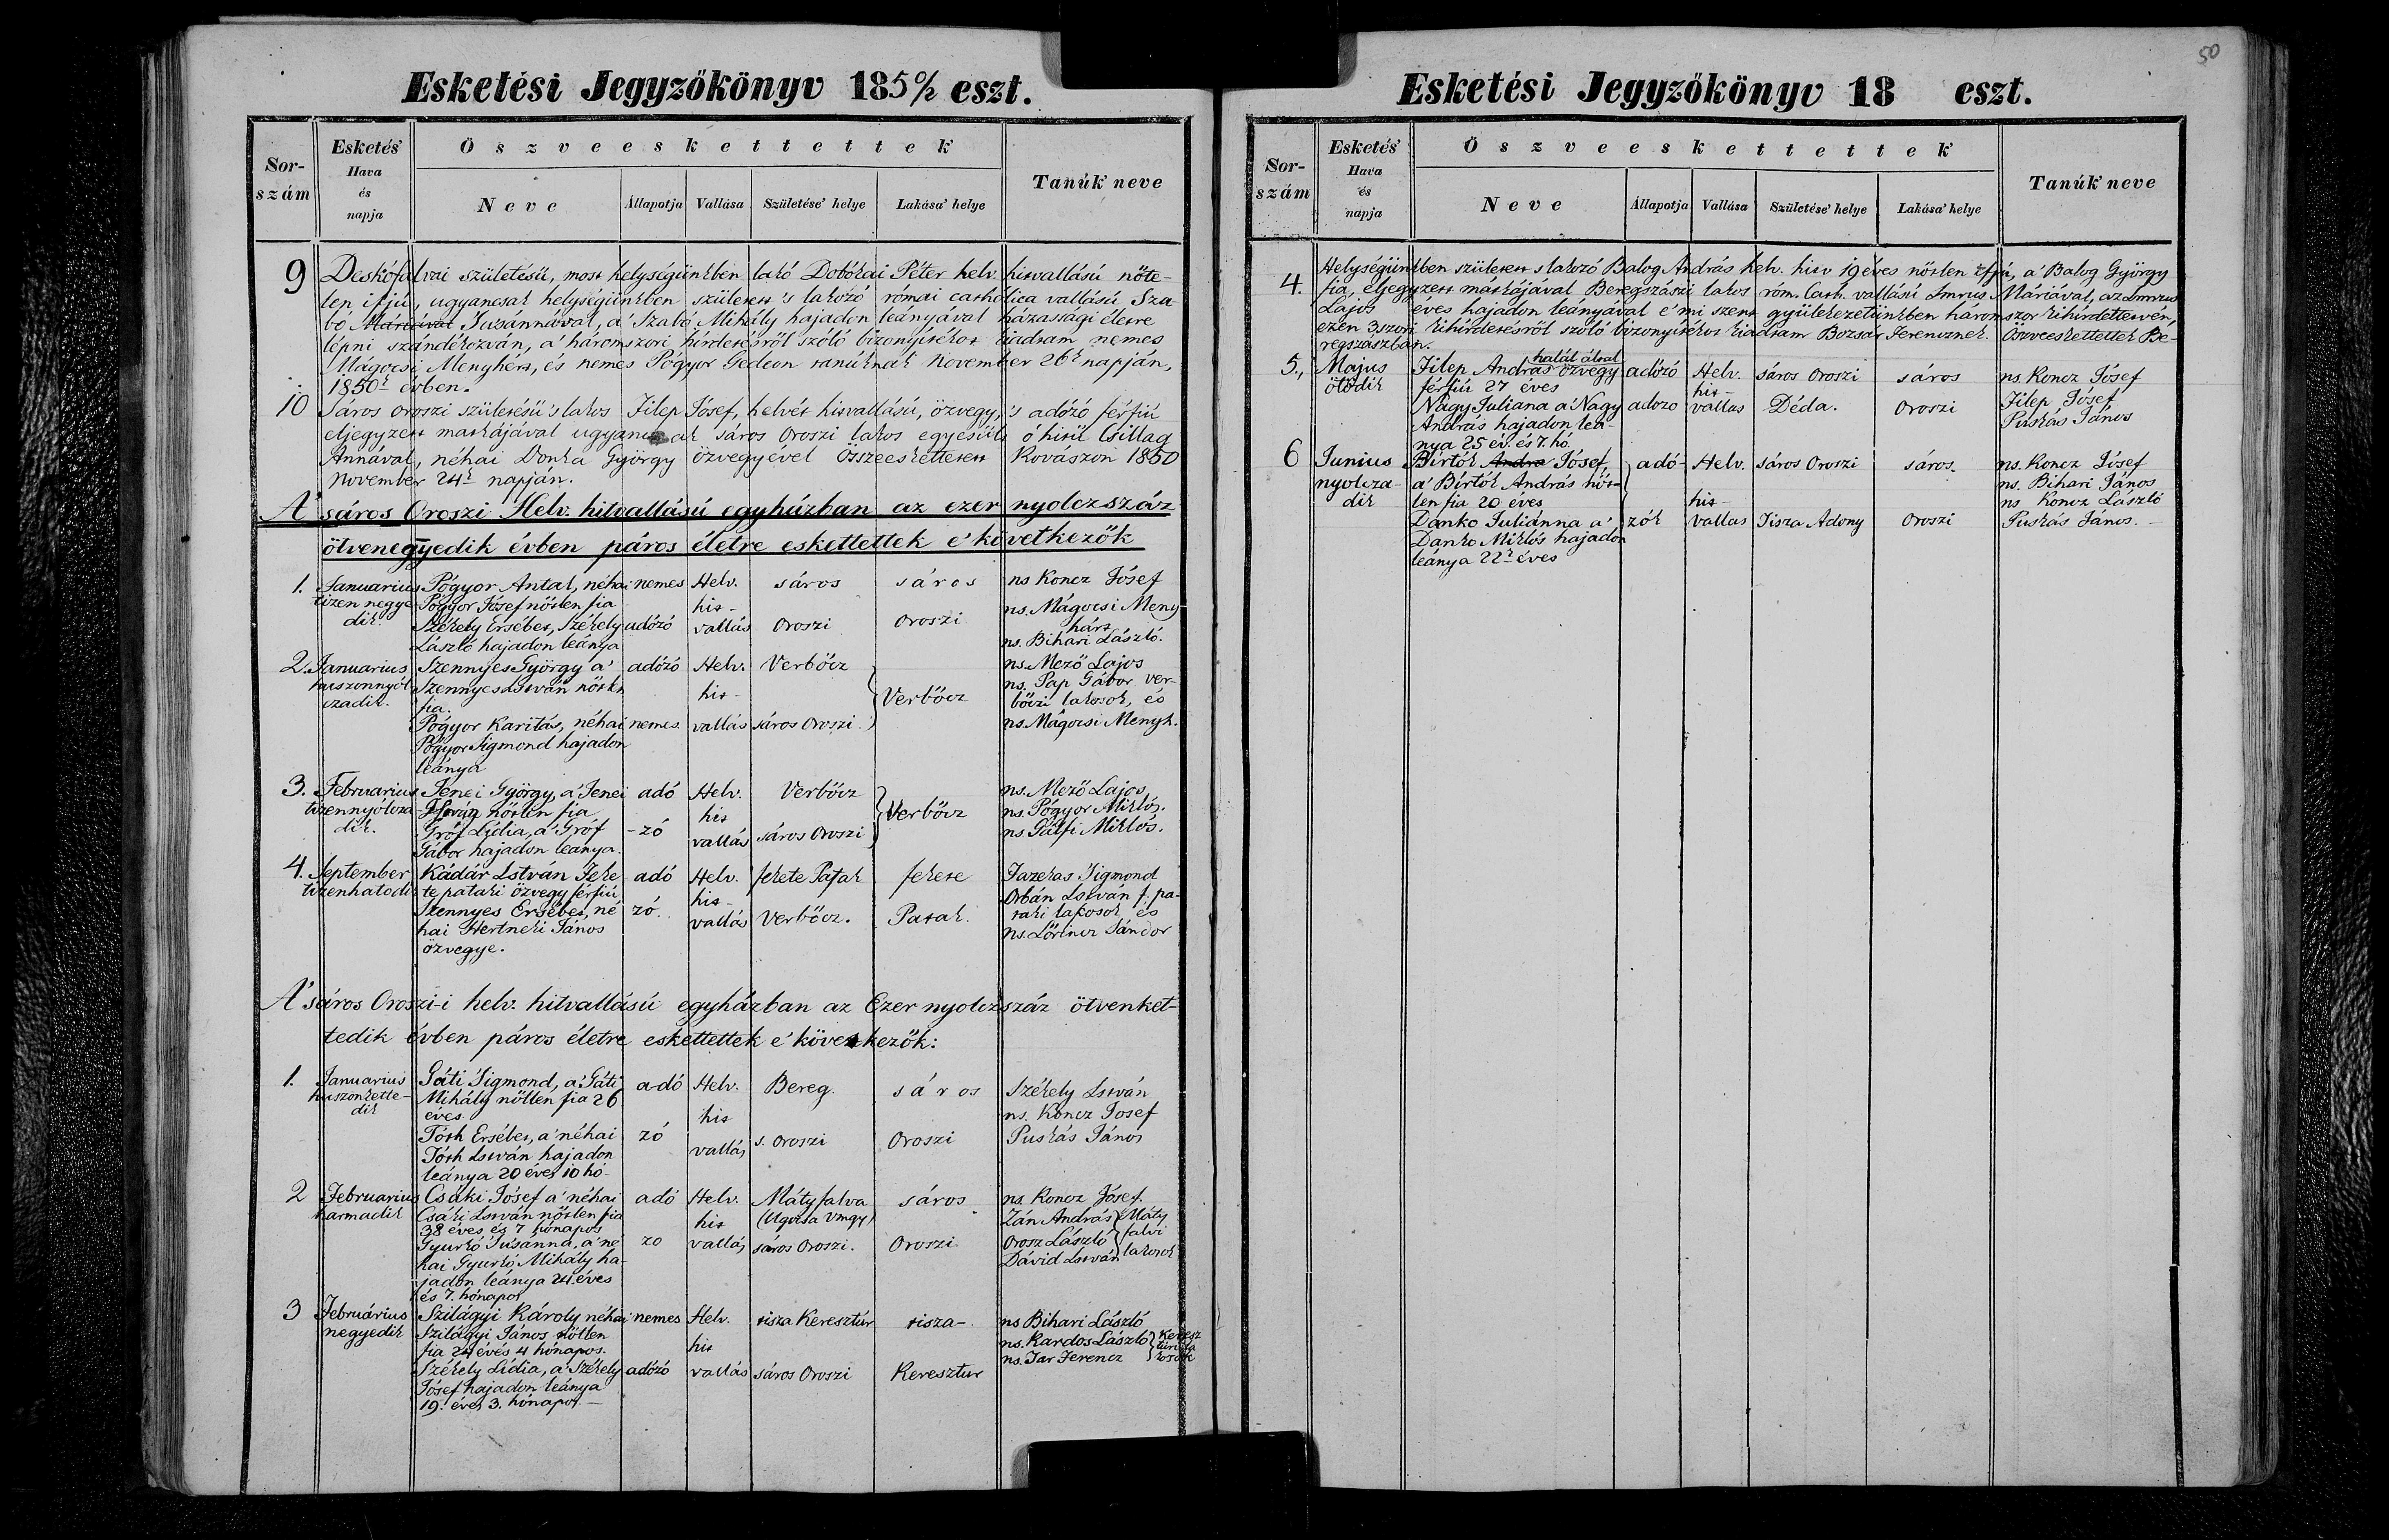 Esketési Jegyzőkönyv 185 0/2 eszt.
Sor-szám
Esketés' Hava és napja
Öszveeskettettek
Neve
Állapotja
Vallása
Születése' helye
Lakása' helye
Tanúk' neve
9 Deskófalvai születésü, most helységünkben lakó Dobókai Péter helv. hitvallású nőte-
len ifjú, ugyancsak helységünkben született 's lakozó római catholica vallású Sza-
bó Máriával Susánnával, a' Szabó Mihály hajadon leányával házassági életre
lépni szándékozván, a' háromszori hirdetésről szóló bizonyítékot kiadtam nemes
Mágocsi Menyhért, és nemes Pógyor Gedeon tanúknak November 26k napján,
1850k évben.
10 Sáros oroszi születésü 's lakos Filep Jósef, helvét hitvallású, özvegy, 's adózó férfiú
eljegyzett matkájával ugyancsak sáros Oroszi lakos egyesült ó hitü Csillag
Annával, néhai Donka György özvegyével összeeskettetett Kovászon 1850
November 24k napján.
A' sáros Oroszi Helv. hitvallású egyházban az ezer nyolczszáz
ötvenegyedik évben páros életre eskettettek e' következők
1. Januarius Pógyor Antal, néhai nemes Helv. sáros sáros ns Koncz Jósef
tizen negye- Pógyor Jósef nőtlen fia hit- ns. Mágocsi Meny-
dik. Székely Ersébet, Székely adózó vallás Oroszi Oroszi hárt
László hajadon leánya ns. Bihari László.
2. Januarius Szennyes György a' adózó Helv. Verbőcz ns. Mező Lajos
huszonnyól Szennyes István nőtlen hit- Verbőcz ns. Pap Gábor ver-
czadik. fia. bőczi lakosok, és
Pógyor Karitás, néhai nemes. vallás sáros Oroszi. ns. Mágocsi Menyh.
Pógyor Sigmond hajadon
leánya
3. Februarius Jenei György, a' Jenei adó Helv. Verbőcz ns. Mező Lajos
tizennyólcza- István nőtlen fia hit Verbőcz ns. Pógyor Miklós.
dik. Gróf Lídia, a' Gróf -zó vallás sáros Oroszi ns Gálfi Miklós.
Gábor hajadon leánya.
4. September Kádár István Feke adó Helv. fekete Patak fekete Fazekas Sigmond
tizenhatodik te pataki özvegy férfiú hit- Orbán István f. pa-
Szennyes Ersébet, né zó. vallás Verbőcz. Patak. taki lakosok és
hai Hertneki János ns. Lőrincz Sándor
özvegye.
A' sáros Oroszi-i helv. hitvallású egyházban az Ezer nyolczszáz ötvenket-
tedik évben páros életre eskettettek e' következők:
1. Januarius Gáti Sigmond, a' Gáti adó Helv. Bereg. sáros Székely István
huszonkette- Mihály nőtlen fia 26 hit ns. Koncz Josef
dik éves. Puskás János
Tóth Ersébet, a' néhai zó vallás s. Oroszi Oroszi
Tóth István hajadon
leánya 20 éves 10 hó-
2 Februarius Csáki Jósef a' néhai adó Helv. Mátyfalva sáros ns. Koncz Jósef.
harmadik Csáki István nőtlen fia hit (Ugocsa Vmgy) Zán András Máty
38 éves és 7 hónapos Orosz László falvi
Gyurkó Susánna, a' né zo vallás sáros Oroszi. Oroszi Dávid István lakosok
hai Gyurkó Mihály ha-
jadon leánya 24. éves
és 7. hónapos
3 Februárius Szilágyi Károly néhai nemes Helv. tisza Keresztúr tisza- ns Bihari László
negyedik Szilágyi János nőtlen hit ns. Kardos László Keresz
fia 24 éves 4 hónapos. ns. Tar Ferencz túri la kosok
Székely Lídia, a' Székely adózó vallás sáros Oroszi Keresztur
Jósef hajadon leánya
19. éves 3. hónapos. -
50
Esketési Jegyzőkönyv 18 eszt.
Sor-szám
Esketés' Hava és napja
Öszveeskettettek
Neve
Állapotja
Vallása
Születése' helye
Lakása' helye
Tanúk' neve
4. Helységünkben születet s lakozó Balog András helv. hitv 19 éves nőtlen ifjú, a' Balog György
fia, eljegyzett matkájával Beregszászi lakos róm. Cath. vallású Imrus Máriával, az Imrus
Lajos éves hajadon leányával e' mi szent gyülekezetünkben háromszor kihirdettetvén,
ezen 3szori kihirdetésről szóló bizonyítékot kiadtam Bozsár Ferencznek. Öszveeskettettek Be-
regszászban.
5., Majus Filep András halál által özvegy adózó Helv. sáros Oroszi sáros ns. Koncz Jósef
ötödik férfiú 27 éves hit- Filep Jósef
Nagy Juliana a' Nagy adozo vallas Déda. Oroszi Puskás János
András hajadon leá-
nya 25 év. és 7. hó.
6 Junius Birtók Andra Jósef, adó- Helv. sáros Oroszi sáros. ns. Koncz Jósef
nyolcza- a' Bírtók András nőt- ns. Bihari János
dik len fia 20 éves hit- ns Koncz László
Danko Juliánna a' zók vallas Tisza Adony Oroszi Puskás János. -
Danko Miklós hajadon
leánya 22k éves